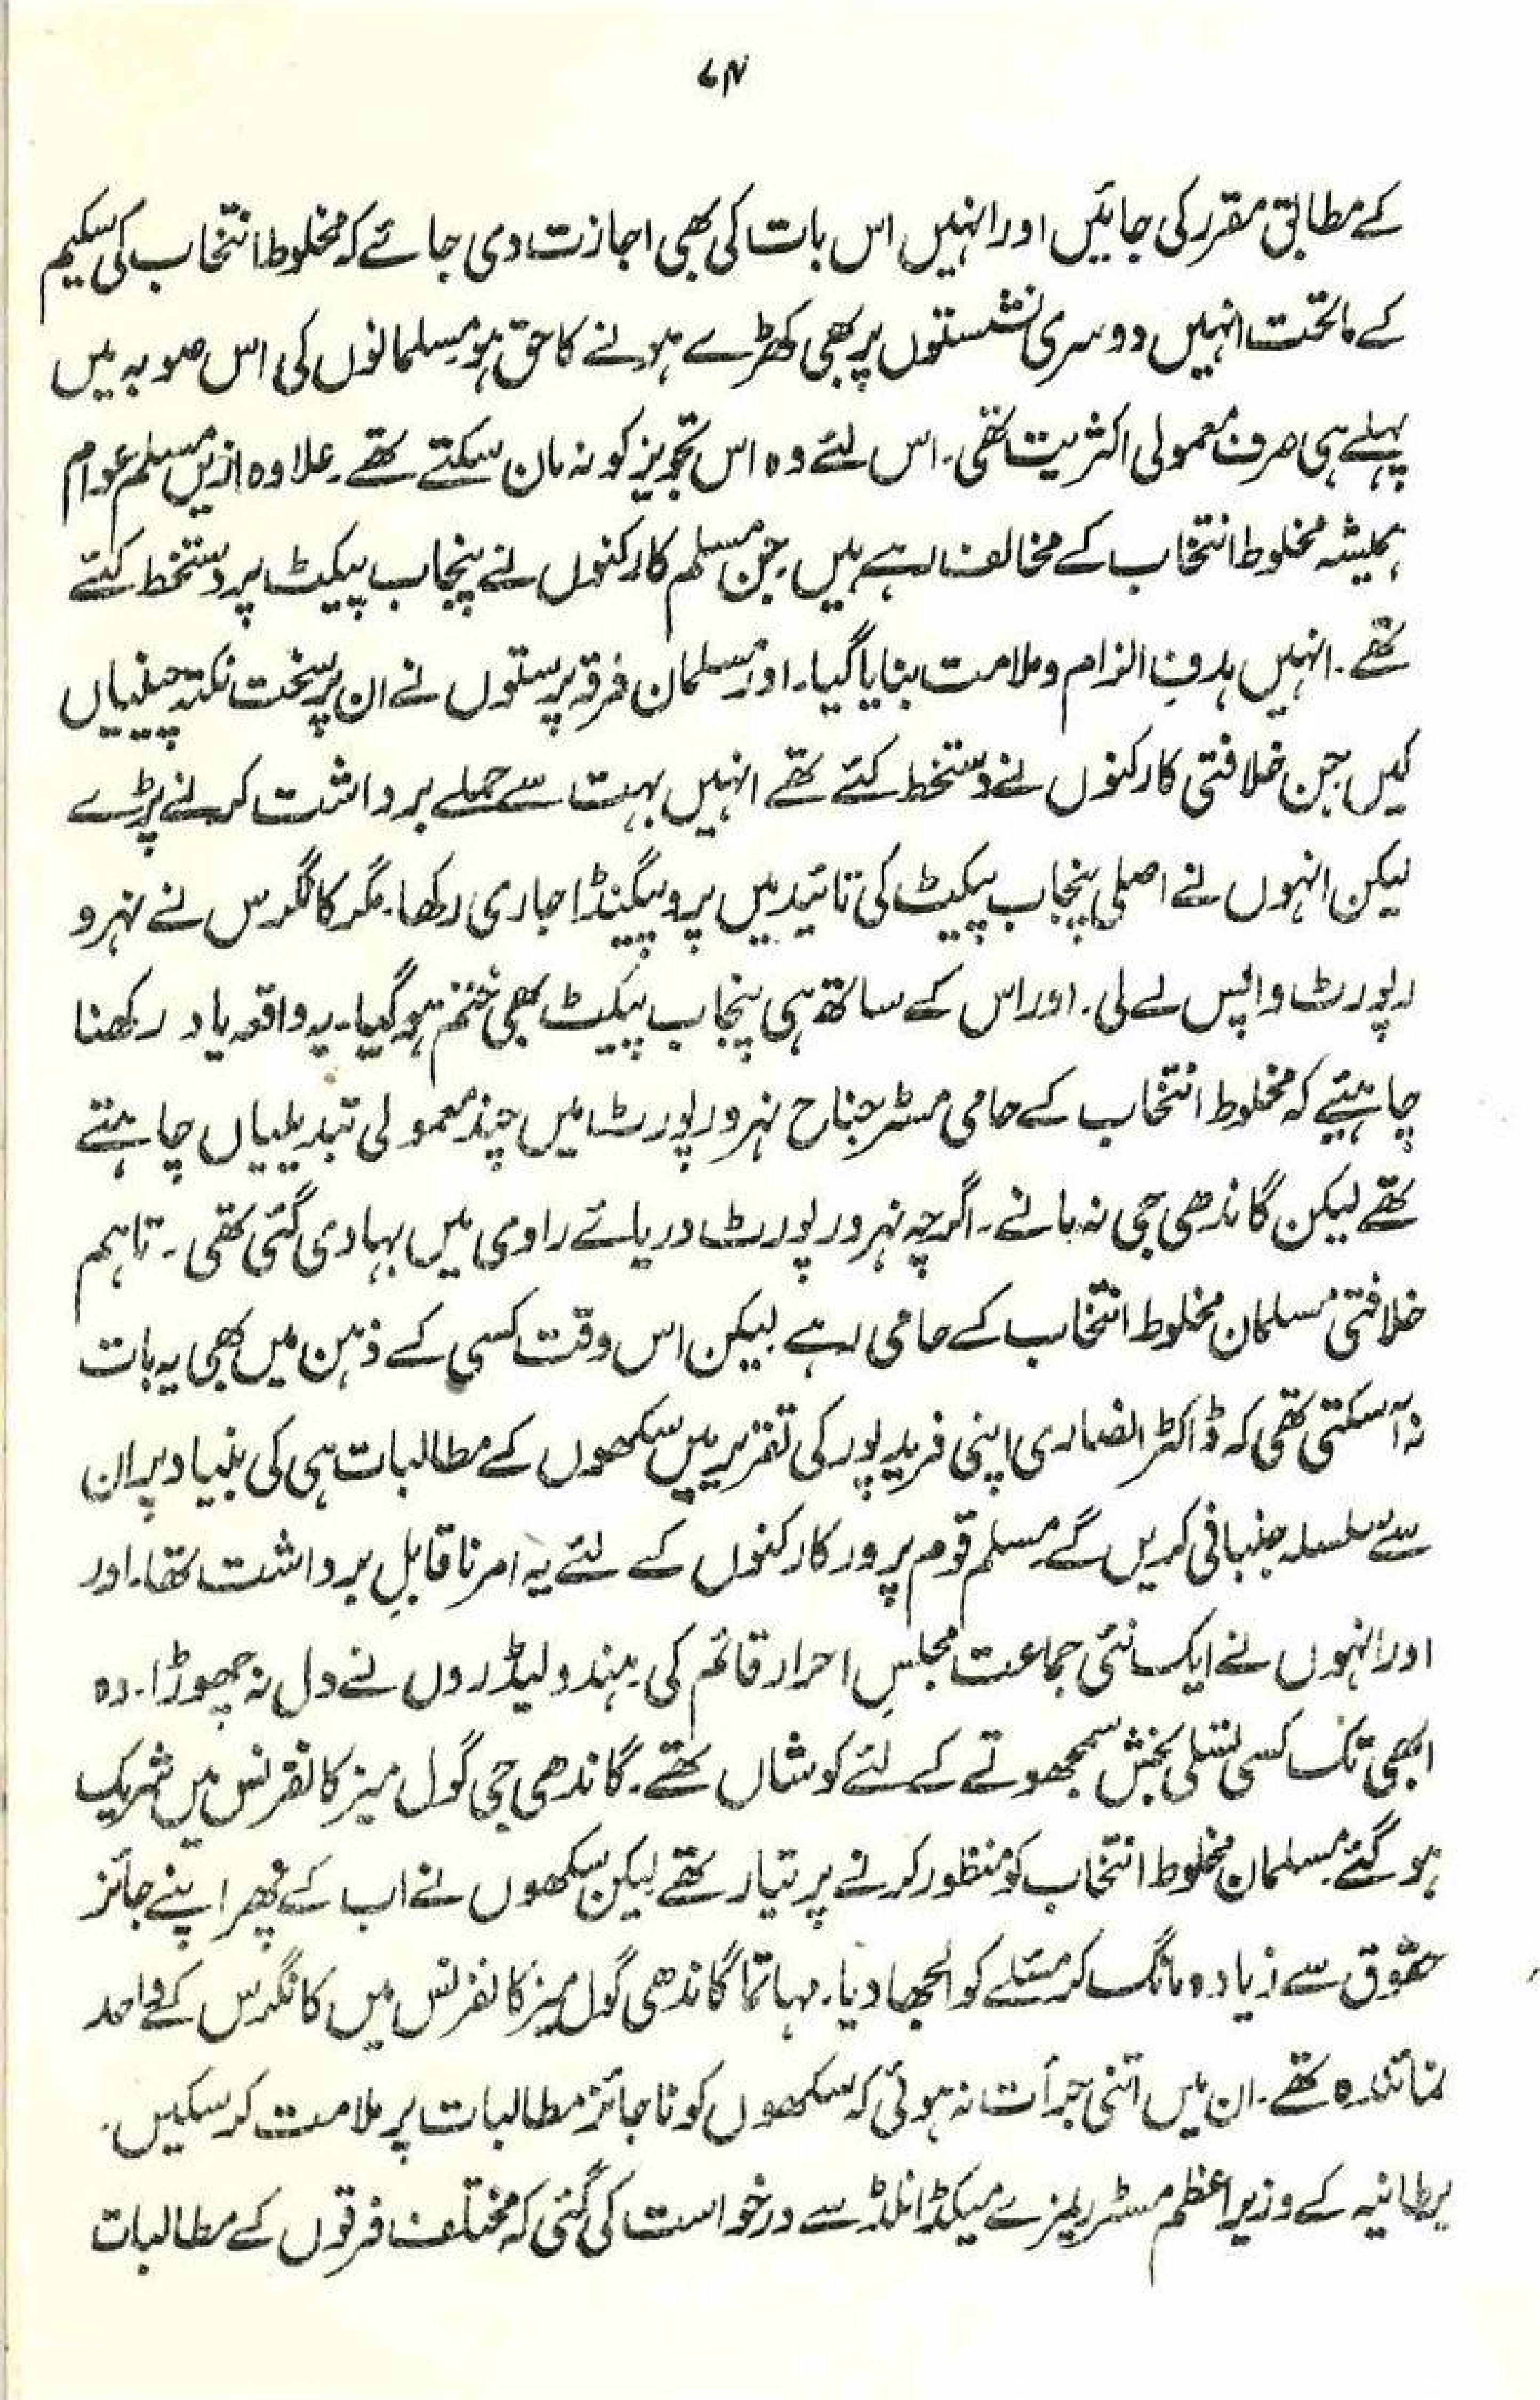 ۷۴
کے مطابق مقرر کی جائیں اور انہیں اس بات کی بھی اجازت دی جائے کہ مخلوط انتخاب کی سکیم
کے ماتحت انہیں دوسری نشستوں پر بھی کھڑے ہونے کا حق ہو مسلمانوں کی اس صوبہ میں
پہلے ہی صرف معمولی اکثریت تھی. اس لئے وہ اس تجویز کو نہ مان سکتے تھے. علاوہ ازیں مسلم عوام
ہمیشہ مخلوط انتخاب کے مخالف رہے ہیں. جن مسلم کارکنوں نے پنجاب پیکیٹ پر دستخط کئے
تھے. انہیں ہدفِ الزام و ملامت بنایا گیا. اور مسلمان فرقہ پرستوں نے ان پر سخت نکتہ چینیاں
کیں جن خلافتی کارکنوں نے دستخط کئے تھے انہیں بہت سے حملے برداشت کرنے پڑے
لیکن انہوں نے اصلی پنجاب پیکیٹ کی تائید میں پروپیگنڈا جاری رکھا. مگر کانگرس نے نہرو
رپورٹ واپس لے لی. اور اس کے ساتھ ہی پنجاب پیکیٹ بھی ختم ہو گیا. یہ واقعہ یاد رکھنا
چاہئیے کہ مخلوط انتخاب کے حامی مسٹر جناح نہرو رپورٹ میں چند معمولی تبدیلیاں چاہتے
تھے لیکن گاندھی جی نہ مانے. اگرچہ نہرو رپورٹ دریائے راوی میں بہا دی گئی تھی. تاہم
خلافتی مسلمان مخلوط انتخاب کے حامی رہے. لیکن اس وقت کسی کے ذہن میں بھی یہ بات
نہ آ سکتی تھی کہ ڈاکٹر انصاری اپنی فرید پور کی تقریر میں سکھوں کے مطالبات ہی کی بنیاد پر ان
سے سلسلہ جنبانی کریں گے مسلم قوم پرور کارکنوں کے لئے یہ امر ناقابلِ برداشت تھا. اور
اور انہوں نے ایک نئی جماعت مجلسِ احرار قائم کی. ہندو لیڈروں نے دل نہ چھوڑا. وہ
ابھی تک کسی تسلی بخش سمجھوتے کے لئے کوشاں تھے. گاندھی جی گول میز کانفرنس میں شریک
ہو گئے. مسلمان مخلوط انتخاب کو منظور کرنے پر تیار تھے لیکن سکھوں نے اب کے پھر اپنے جائز
حقوق سے زیادہ مانگ کر مسئلے کو الجھا دیا. مہاتما گاندھی گول میز کانفرنس میں کانگرس کے واحد
نمائندہ تھے. ان میں اتنی جرأت نہ ہوئی کہ سکھوں کو ناجائز مطالبات پر ملامت کر سکیں.
برطانیہ کے وزیر اعظم مسٹر ریمزے میکڈانلڈ سے درخواست کی گئی کہ مختلف فرقوں کے مطالبات